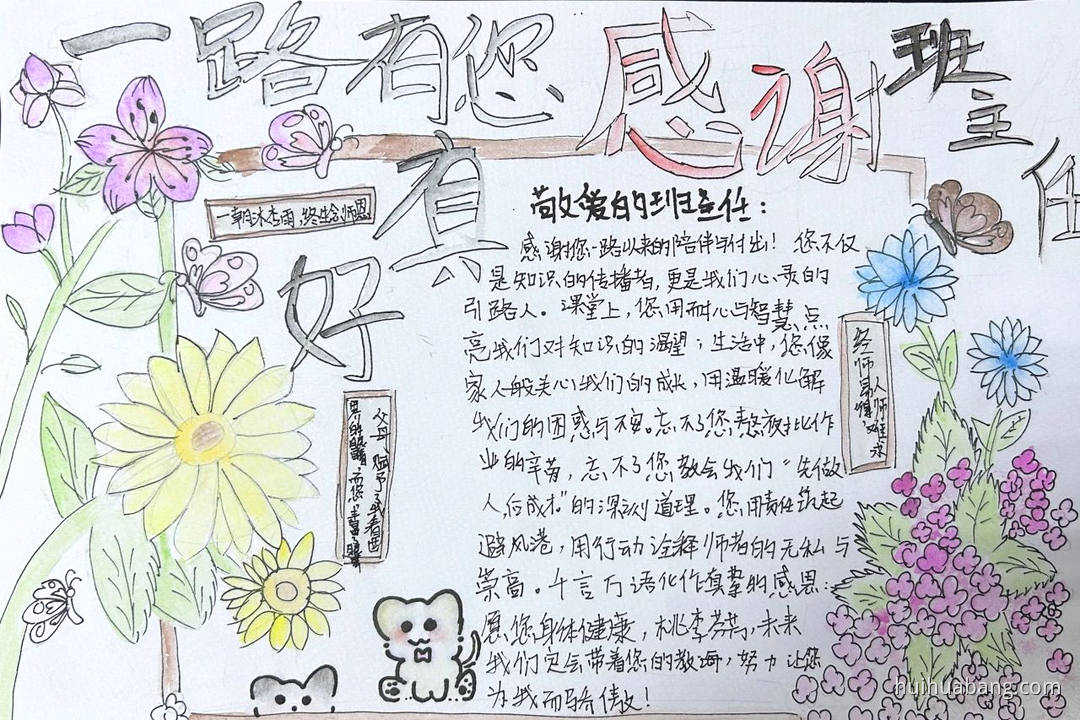 一路有您 感谢班主任
真好
一朝沐杏雨,终生念师恩
敬爱的班主任:
感谢您一路以来的陪伴与付出!您不仅
是知识的传播者,更是我们心灵的
引路人。课堂上,您用耐心与智慧点
亮我们对知识的渴望;生活中,您像
家人般关心我们的成长,用温暖化解
我们的困惑与不安。忘不了您熬夜批作
业的辛劳,忘不了您教会我们“先做
人后成才”的深刻道理。您用责任筑起
避风港,用行动诠释师者的无私与
崇高。千言万语化作真挚的感恩:
愿您身体健康,桃李芬芳,未来
我们定会带着您的教诲,努力让您
为我而骄傲!
经师易得,
人师难求
父母,赋予了我看西
huihuabang.com